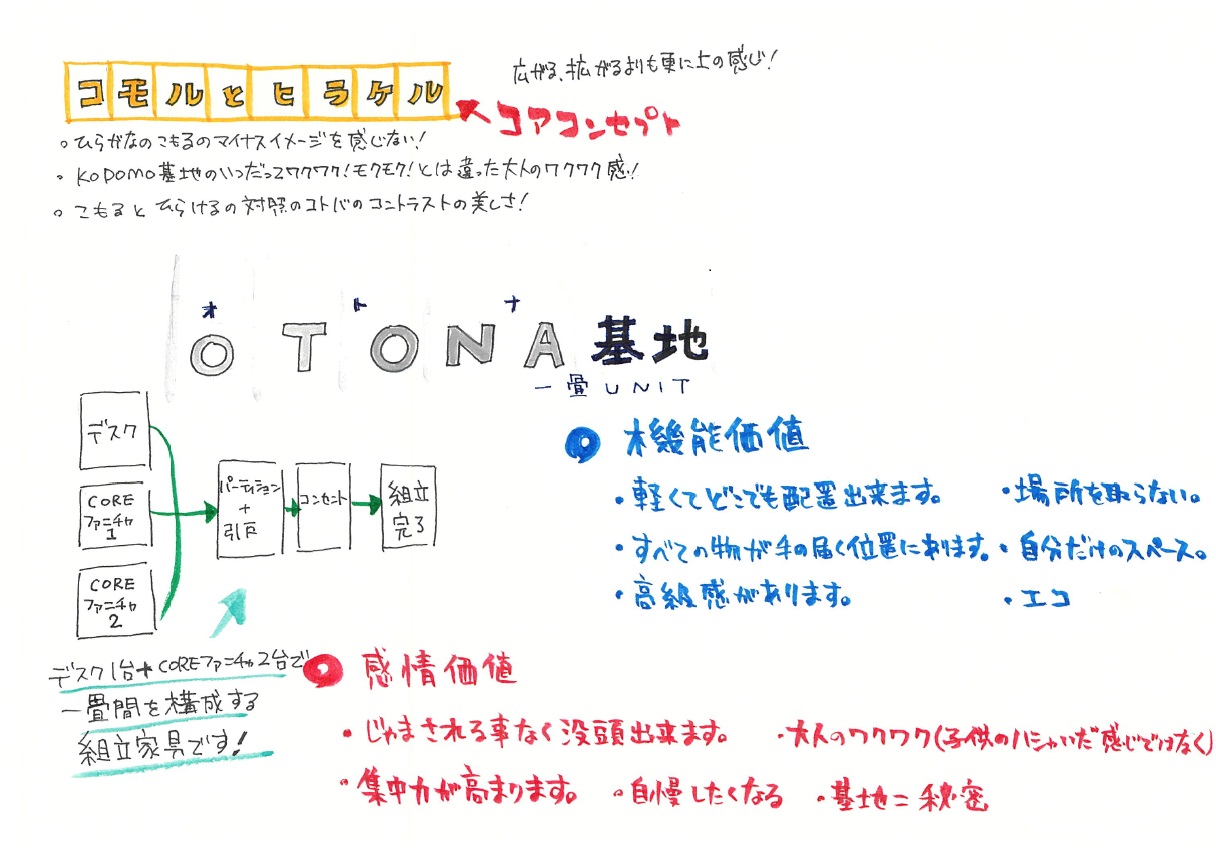 広がる、拡がるよりも更に上の感じ!
コモルとヒラケル
コアコンセプト
。ひらがなのこもるのマイナスイメージを感じない!
・KODOMO基地のいつだってワクワク!モクモク!とは違った大人のワクワク感!
。こもるとひらけるの対照のコトバのコントラストの美しさ!
オ ト ナ
OTONA基地
一畳UNIT
デスク
CORE
ファニチャ
1
CORE
ファニチャ
2
パーティション
+
引戸
コンセント
組立
完了
デスク1台+COREファニチャ2台で
一畳間を構成する
組立家具です!
機能価値
・軽くてどこでも配置出来ます。
・場所を取らない。
・すべての物が手の届く位置にあります。
・自分だけのスペース。
・高級感があります。
・エコ
感情価値
・じゃまされる事なく没頭出来ます。
・大人のワクワク(子供のハシャいだ感じではなく)
・集中力が高まります。
・自慢したくなる
・基地=秘密